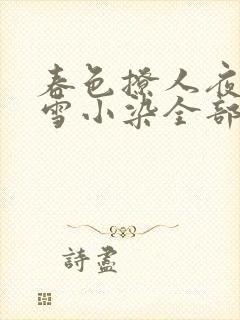 春色撩人夜
雪小染全部
詩盡